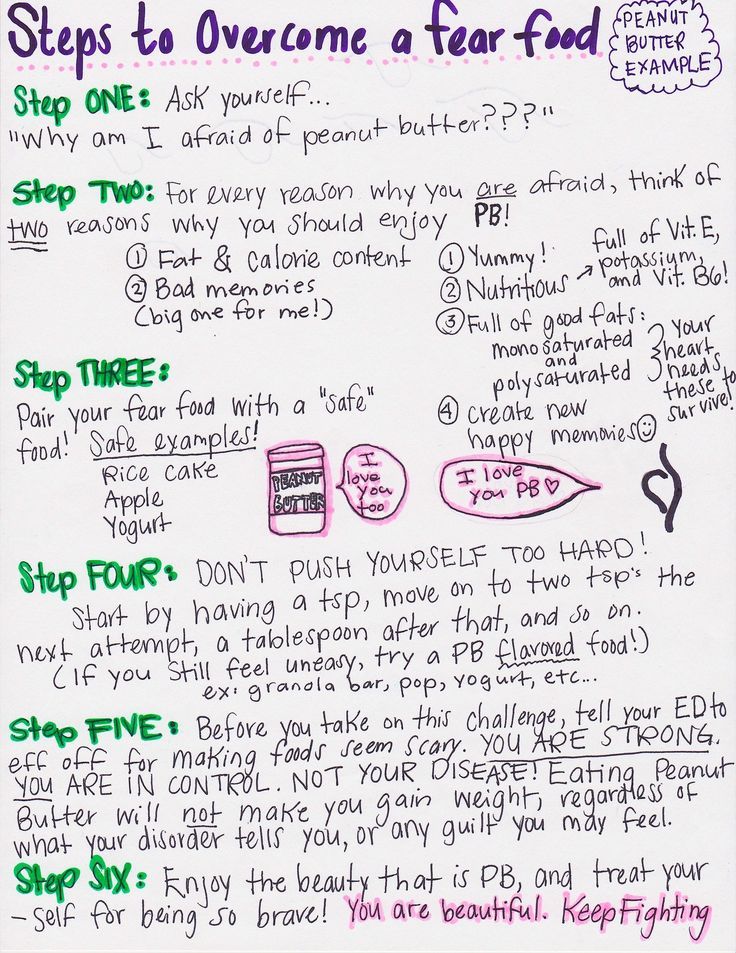 Steps to Overcome a fear food
PEANUT
BUTTER
EXAMPLE
Step ONE: Ask yourself...
"Why am I afraid of peanut butter???"
Step TWO: For every reason why you are afraid, think of
two reasons why you should enjoy PB!
① Fat & calorie content
② Bad memories
(big one for me!)
① Yummy!
② Nutritious → full of Vit. E,
potassium,
and Vit. B6!
③ Full of good fats:
monosaturated
and
polysaturated
your
heart
needs
these to
survive!
④ create new
happy memories☺
Step THREE:
Pair your fear food with a "safe"
food! Safe examples!
Rice cake
Apple
Yogurt
PEANUT
BUTTER
I
love
you
too
I love
you PB♡
Step FOUR: DON'T PUSH YOURSELF TOO HARD!
Start by having a tsp, move on to two tsp's the
next attempt, a tablespoon after that, and so on.
(If you still feel uneasy, try a PB flavored food!)
ex: granola bar, pop, yogurt, etc...
Step FIVE: Before you take on this challenge, tell your ED to
eff off for making foods seem scary. YOU ARE STRONG.
YOU ARE IN CONTROL. NOT YOUR DISEASE! Eating Peanut
Butter will not make you gain weight, regardless of
what your disorder tells you, or any guilt you may feel.
Step SIX: Enjoy the beauty that is PB, and treat your
-self for being so brave! You are beautiful. Keep Fighting